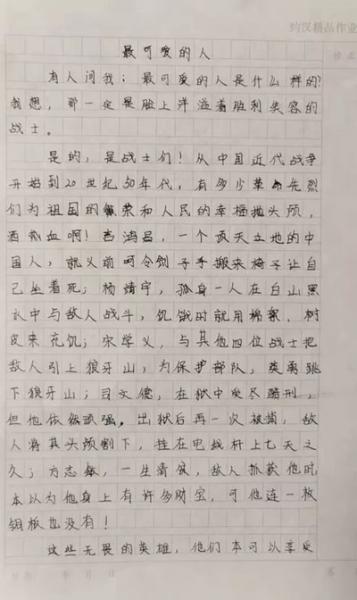 均汉精品作业
最可爱的人
有人问我：最可爱的人是什么样的?
我想，那一定是脸上洋溢着胜利笑容的
战士。
是的，是战士们！从中国近代战争
开始到20世纪50年代，有多少革命先烈
们为祖国的繁荣和人民的幸福抛头颅，
洒热血啊！吉鸿昌，一个顶天立地的中
国人，就义前呵令刽子手搬来椅子让自
己坐着死；杨靖宇，孤身一人在白山黑
水中与敌人战斗，饥饿时就用棉絮、树
皮来充饥；宋学义，与其他四位战士把
敌人引上狼牙山，为保护部队，英勇跳
下狼牙山；司文德，在狱中受尽酷刑，
但他依然顽强，出狱后再一次被捕，敌
人将其头颅割下，挂在电线杆上七天之
久；方志敏，一生清贫，敌人抓获他时
本以为他身上有许多财宝，可他连一枚
铜板也没有！
这些无畏的英雄，他们本可以享受